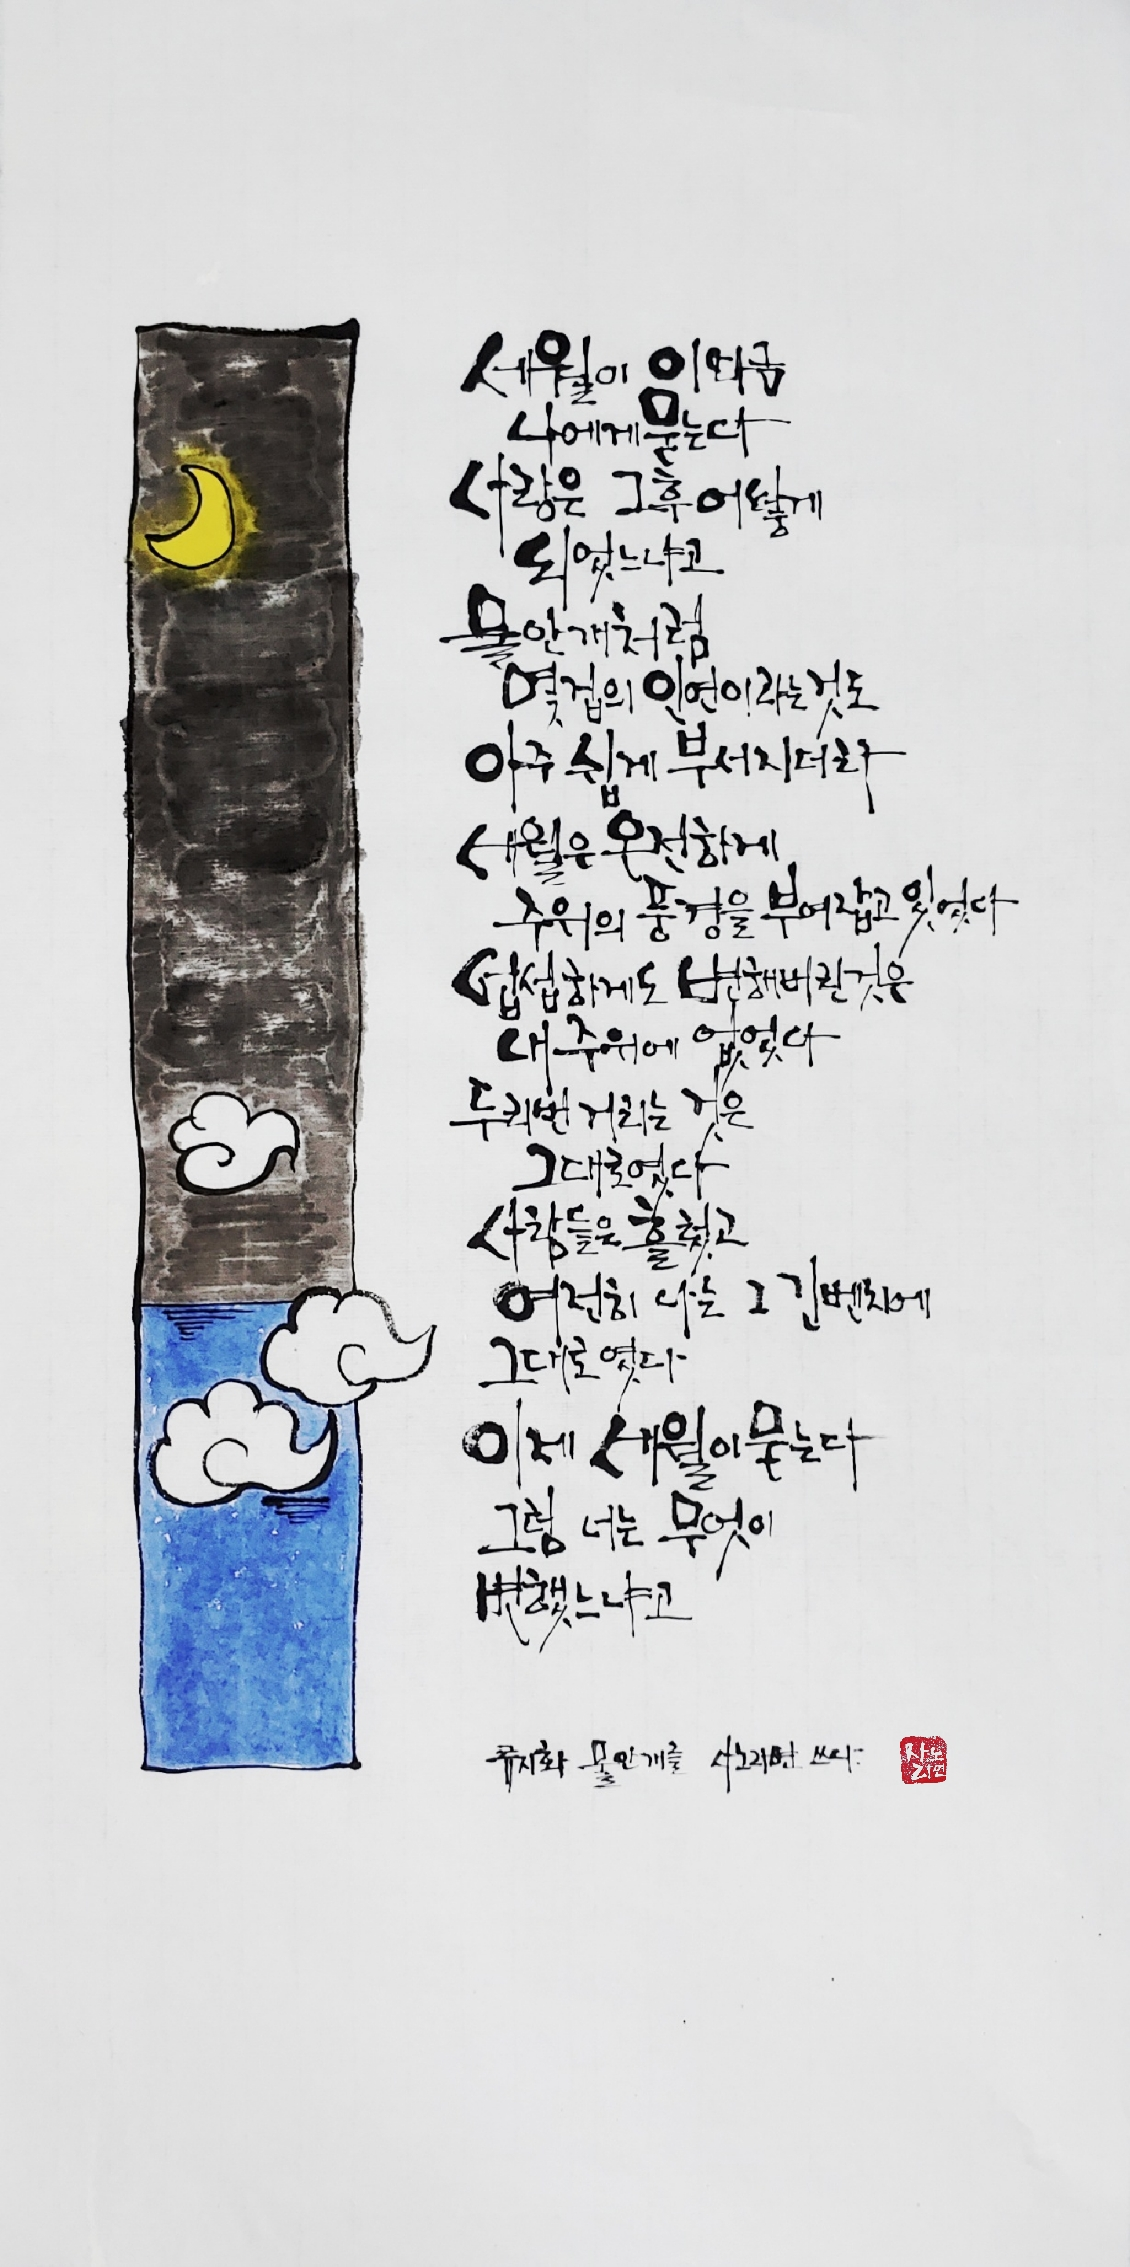 세월이 이따금
나에게 묻는다
사랑은 그후 어떻게
되었느냐고
물안개처럼
몇겁의 인연이라는것도
아주 쉽게 부서지더라
세월은 온전하게
주위의 풍경을 부여잡고 있었다
섭섭하게도 변해버린것은
내 주위에 없었다
두리번 거리는 것은
그대로였다
사람들은 흘렀고
여전히 나는 그 긴벤치에
그대로였다
이제 세월이 묻는다
그럼 너는 무엇이
변했느냐고
류시화 물안개를 사노라면 쓰다
사노라면